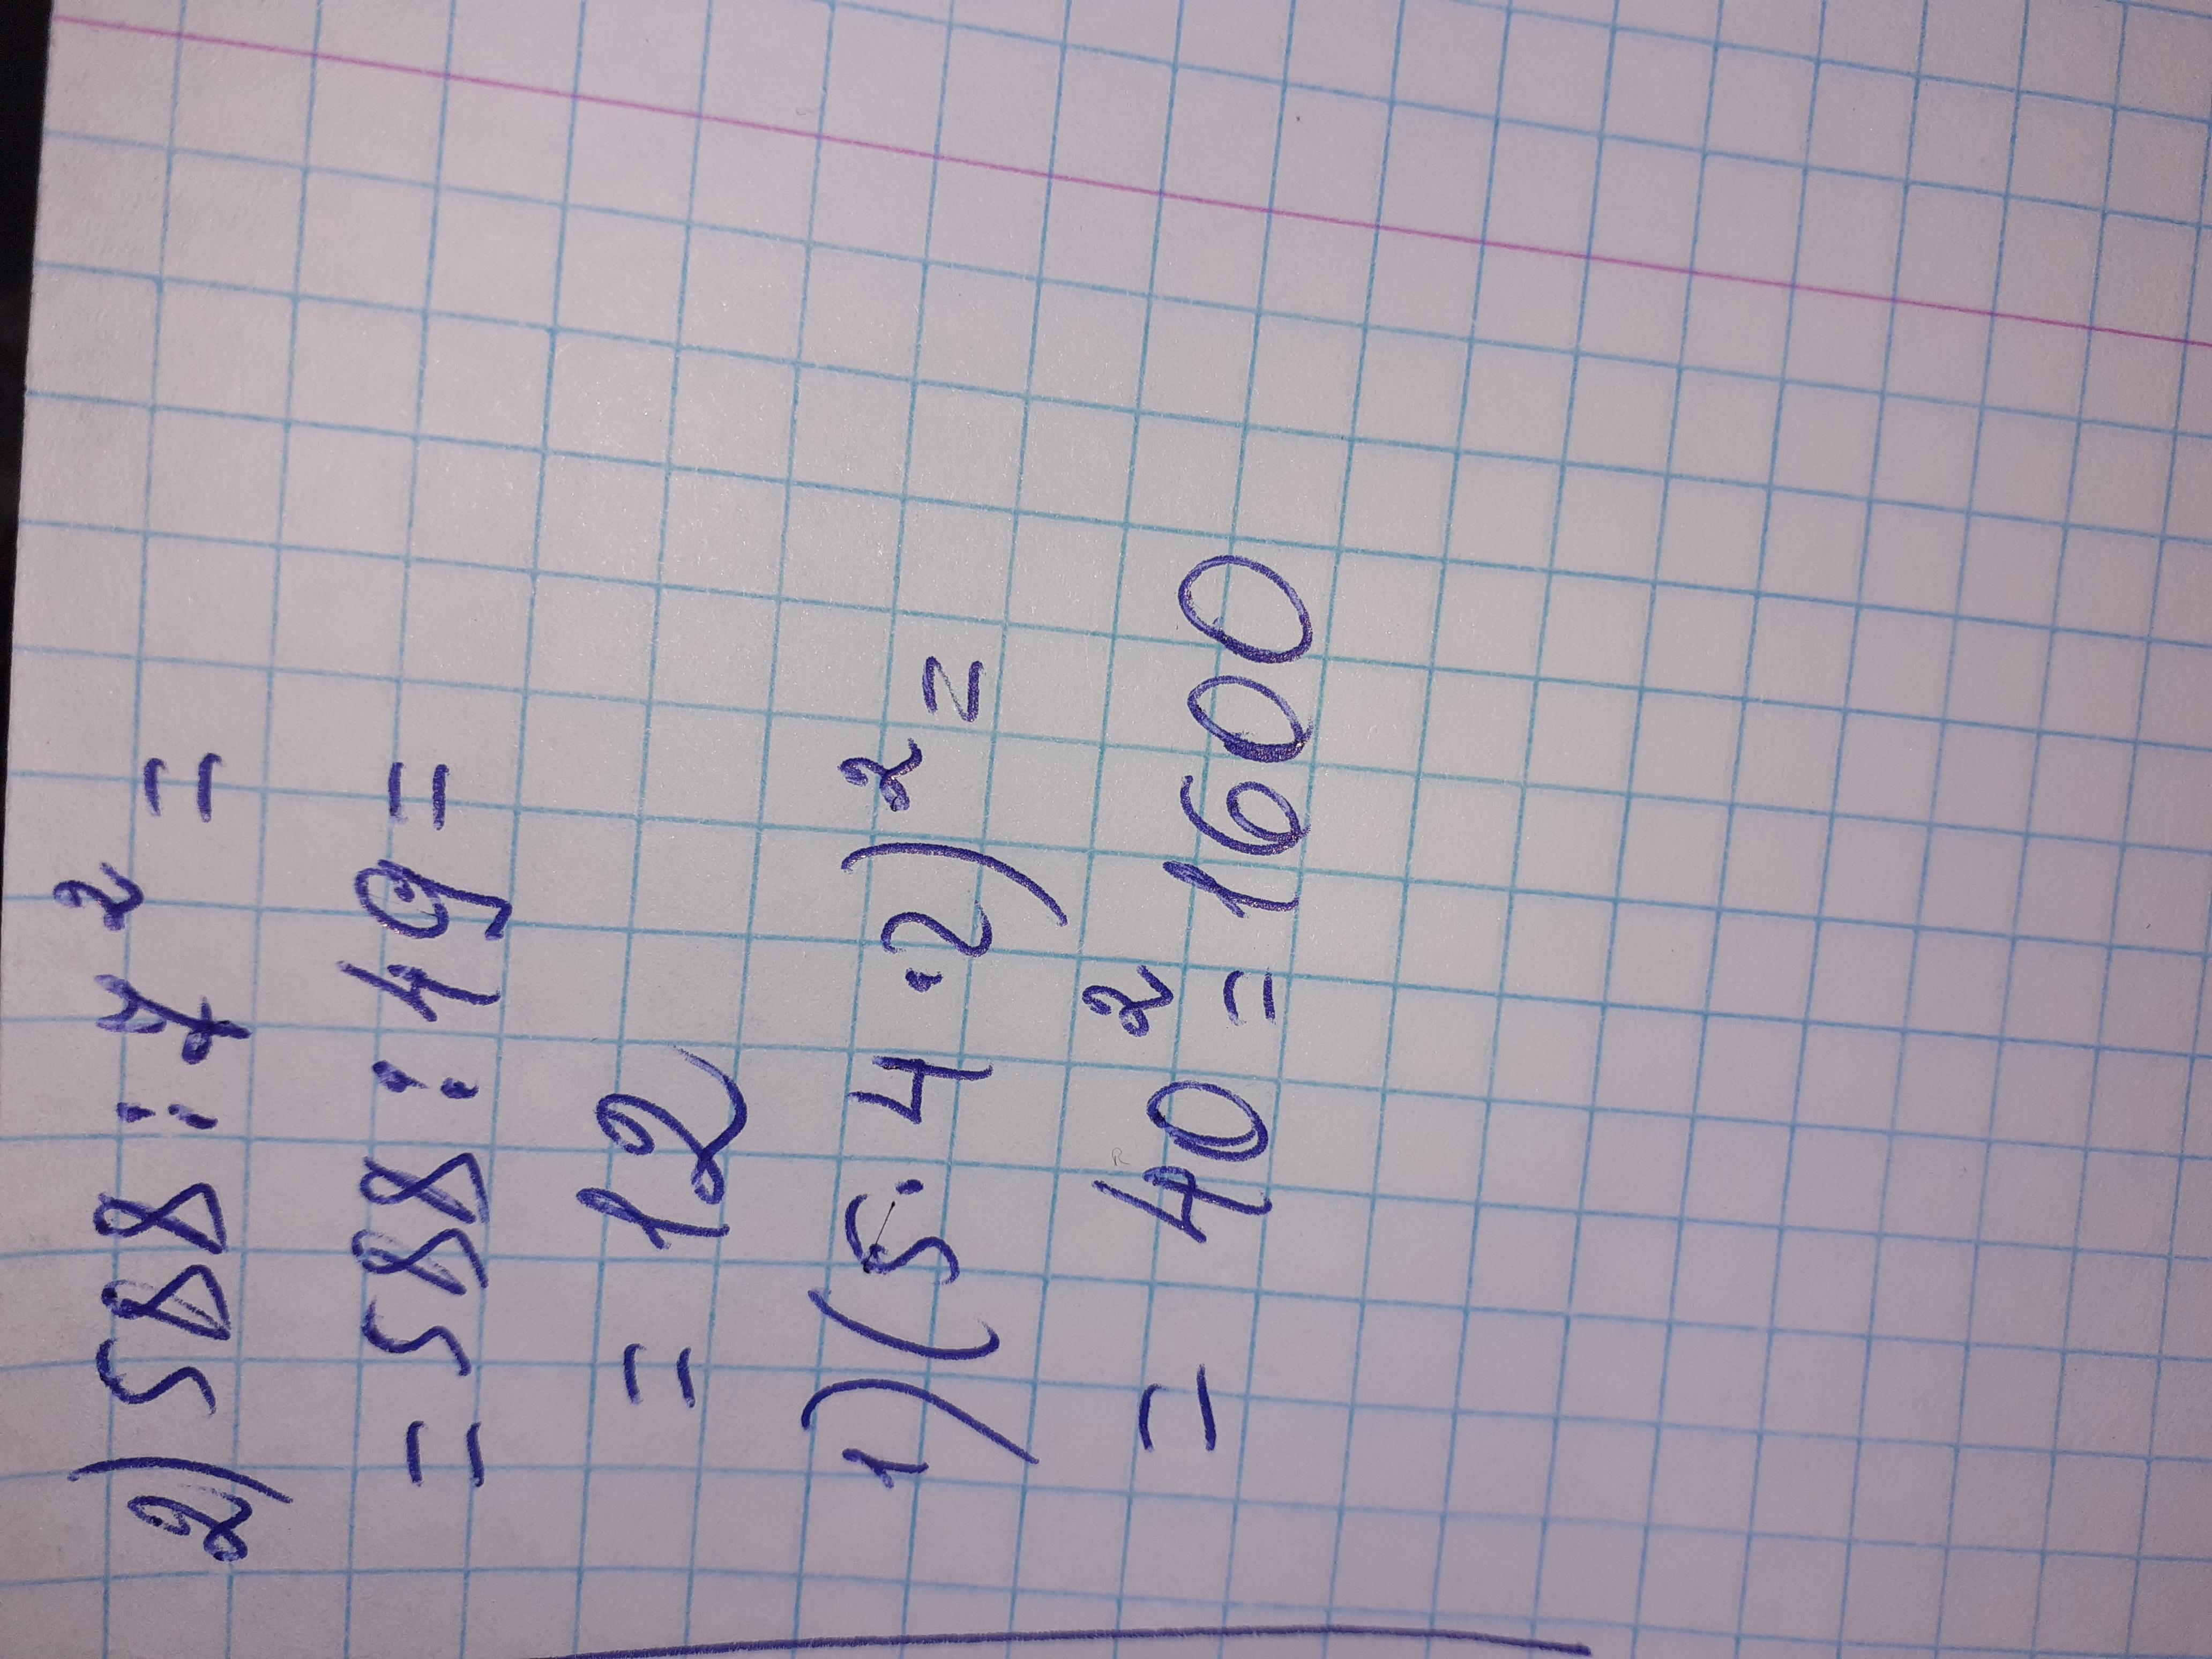 2) 588 : 7² =
= 588 : 49 =
= 12
1) (5 · 4 · 2)² =
= 40² = 1600